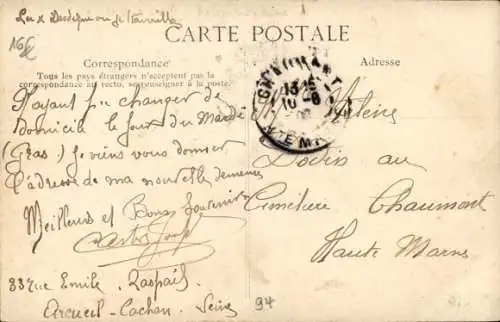 CARTE POSTALE
Correspondance
Adresse
Tous les pays étrangers n'acceptent pas la
correspondance au recto, se renseigner à la poste.
N'ayant pu changer de
Domicile le jour du Mardi
(Gras) je viens vous donner
l'adresse de ma nouvelle demeure
Meilleurs et Bons Souvenirs
33 rue Emile Raspail
Arcueil-Cachan Seine
94
au
Cimetière Chaumont
Haute Marne